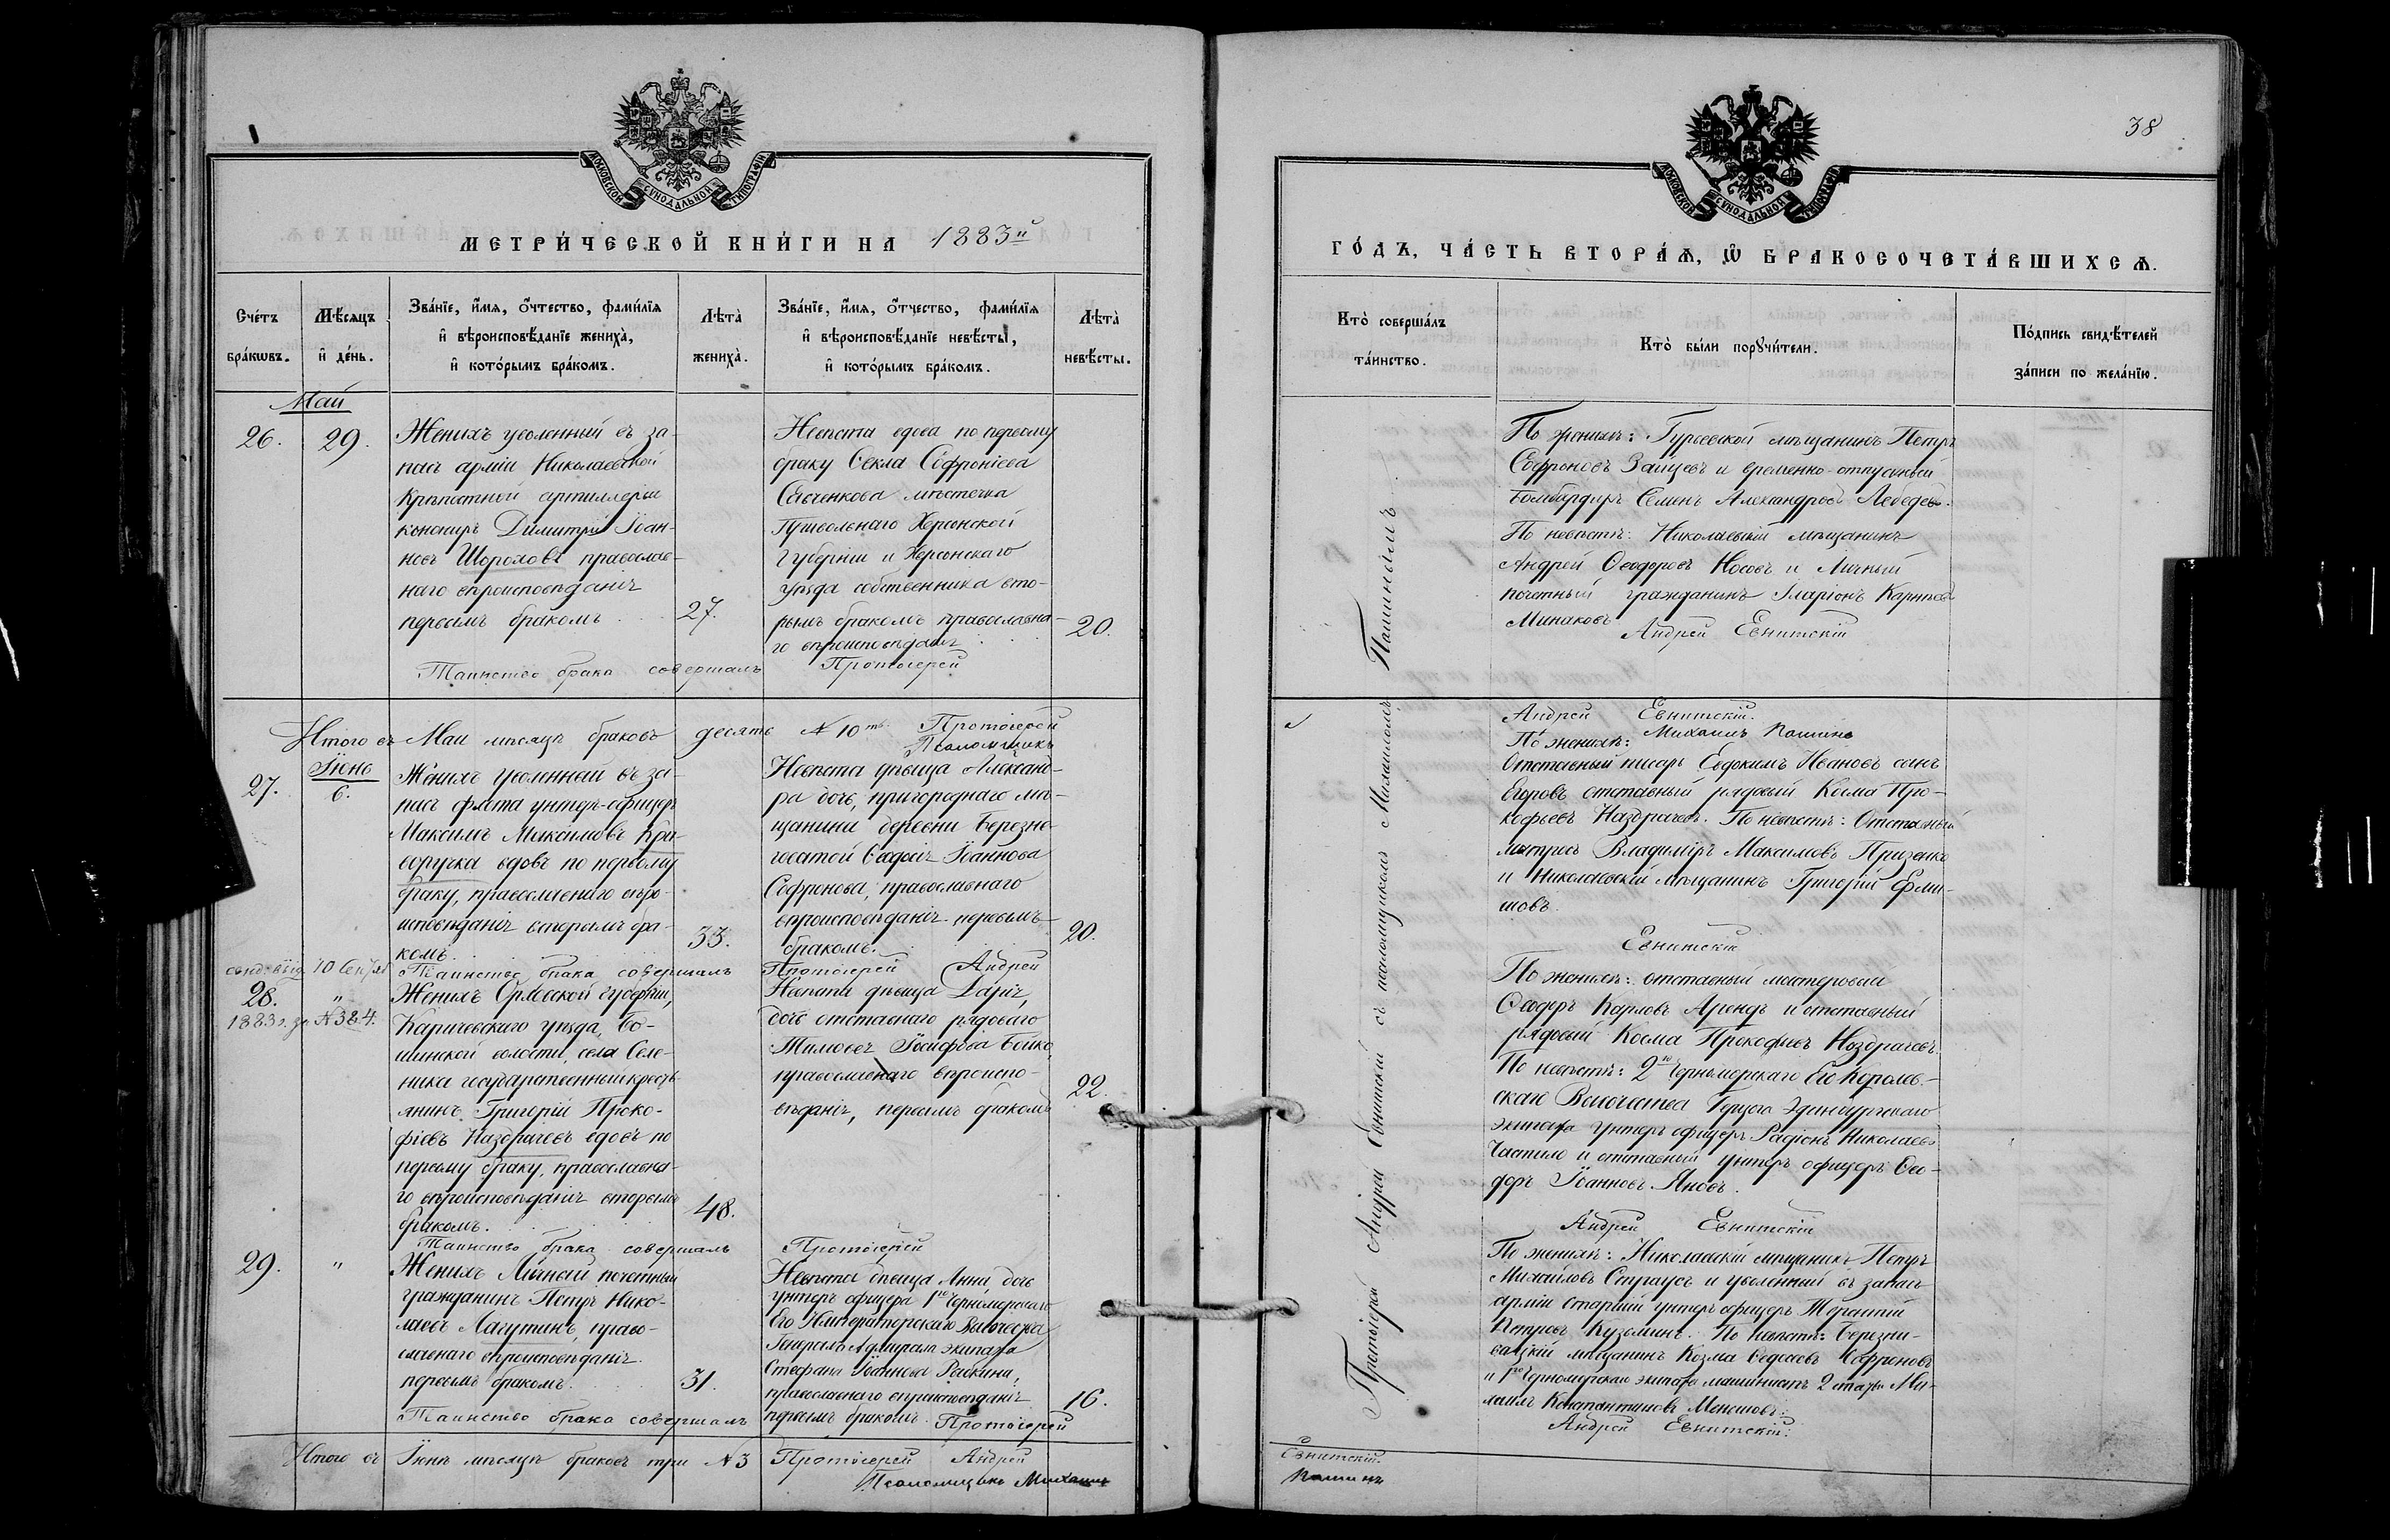 МОСКОВСКОЙ СѴНОДАЛЬНОЙ ТИПОГРАФІИ
МЕТРИ́ЧЕСКОЙ КНИ́ГИ НА 1883й
Сче́тъ бра́кѡвъ.
Мѣ́сяцъ и҆ де́нь.
Зва́нїе, и҆́мя, о҆́тчество, фами́лїя
и҆ вѣроисповѣ́данїе жениха̀,
и҆ кото́рымъ бра́комъ.
Лѣта̀ жениха̀.
Зва́нїе, и҆́мя, о҆́тчество, фами́лїя
и҆ вѣроисповѣ́данїе невѣ́сты,
и҆ кото́рымъ бра́комъ.
Лѣта̀ невѣ́сты.
Май
26.
29.
Женихъ уволенный въ за-
пасъ арміи Николаевской
крѣпостной артиллеріи
канониръ Димитрій Іоан-
новъ Шороховъ православ-
наго вѣроисповѣданія
первымъ бракомъ
27.
Невѣста вдова по первому
браку Ѳекла Софроніева
Савченкова мѣстечка
Привольнаго Херсонской
Губерніи и Херсонскаго
уѣзда собственника вто-
рымъ бракомъ православна-
го вѣроисповѣданія
20.
Таинство брака совершалъ Протоіерей
Итого въ Маи мѣсяцѣ браковъ десять № 10ть Протоіерей
Псаломщикъ
27.
Іюнь
6.
Женихъ уволенный въ за-
пасъ флота унтеръ-офицеръ
Максимъ Максимовъ Кри-
воручка вдовъ по первому
браку, православнаго вѣро-
исповѣданія вторымъ бра-
комъ.
33.
Невѣста дѣвица Александ-
ра дочь, пригороднаго мѣ-
щанина деревни Березне-
говатой Ѳеодосія Іоаннова
Софронова, православнаго
вѣроисповѣданія первымъ
бракомъ.
20.
Таинство брака совершалъ Протоіерей Андрей
10 Сентяб
1883 г. за № 384.
28.
"
Женихъ Орловской губерніи,
Карачевскаго уѣзда, Бо-
шинской волости, села Селе-
ника государственный кресть-
янинъ Григорій Проко-
фіевъ Наздрачевъ вдовъ по
первому браку, православна-
го вѣроисповѣданія вторымъ
бракомъ.
48.
Невѣста дѣвица Дарія,
дочь отставнаго рядоваго
Тимоѳея Іосифова Бойко,
православнаго вѣроиспо-
вѣданія, первымъ бракомъ
22.
Таинство брака совершалъ Протоіерей
29.
"
Женихъ Личный почетный
гражданинъ Петръ Нико-
лаевъ Лагутинъ, право-
славнаго вѣроисповѣданія
первымъ бракомъ.
31.
Невѣста дѣвица Анна дочь
унтеръ офицера 1го Черноморскаго
Его Императорскаго Высочества
Генералъ Адмирала экипажа
Стефана Іоаннова Рыбкина,
православнаго вѣроисповѣданія
первымъ бракомъ.
16.
Таинство брака совершалъ Протоіерей
Итого въ Іюнѣ мѣсяцѣ браковъ три № 3 Протоіерей Андрей
Псаломщикъ Михаилъ
38
МОСКОВСКОЙ СѴНОДАЛЬНОЙ ТИПОГРАФІИ
ГО́ДЪ, ЧА́СТЬ ВТОРА́Ѧ, Ѡ҆ БРАКОСОЧЕТА́ВШИХСѦ.
Кто̀ соверша́лъ
та́инство.
Кто̀ бы́ли порꙋчи́тели.
По́дпись свидѣ́телей
за́писи по жела́нїю.
Протоіерей Андрей Евнитскій съ псаломщикомъ Михаиломъ Пашинымъ
По женихѣ: Гурьевской мѣщанинъ Петръ
Софроновъ Зайцевъ и временно-отпускной
Бомбардиръ Семенъ Александровъ Лебедевъ.
По невѣстѣ: Николаевскій мѣщанинъ
Андрей Ѳеодоровъ Носовъ и Личный
почетный гражданинъ Иларіонъ Карповъ
Минаковъ
Андрей Евнитскій
Андрей Евнитскій.
Михаилъ Пашинъ
По женихѣ:
Отставный писарь Евдокимъ Ивановъ сынъ
Егоровъ отставный рядовый Косма Про-
кофьевъ Наздрачевъ. По невѣстѣ: Отставный
матросъ Владиміръ Максимовъ Призенко
и Николаевскій мѣщанинъ Григорій
Евнитскій
По женихѣ: отставный мастеровый
Ѳеодоръ Карловъ Арендъ и отставный
рядовый Косма Прокофьевъ Ноздрачевъ.
По невѣстѣ: 2го Черноморскаго Его Королев-
скаго Высочества Герцога Эдинбургскаго
экипажа унтеръ офицеръ Радіонъ Николаевъ
Частило и отставный унтеръ офицеръ Ѳео-
доръ Іоанновъ Яновъ.
Андрей Евнитскій
По женихѣ: Николаевскій мѣщанинъ Петръ
Михайловъ Страусъ и уволенный въ запасъ
арміи старшій унтеръ офицеръ Терентій
Петровъ Кузьминъ. По невѣстѣ: Березне-
ватскій мѣщанинъ Козма Ѳедосѣевъ Софроновъ
и 1го Черноморскаго экипажа машинистъ 2 статьи Ми-
хаилъ Константиновъ Меншовъ.
Андрей Евнитскій.
Евнитскій.
Пашинъ